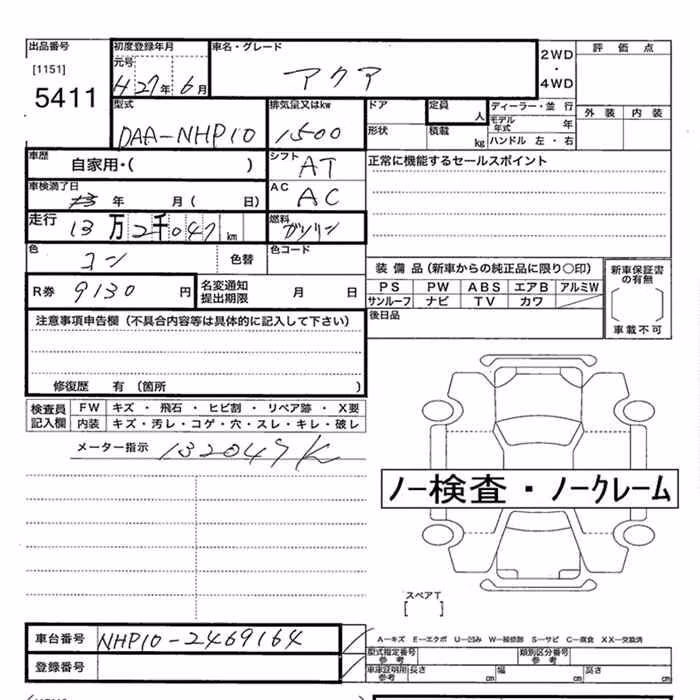 出品番号 初度登録年月 車名・グレード 2WD・4WD 評価点
[1151] 元号 アクア
5411 H27年6月 外装 内装
型式 排気量又はkw ドア 定員 人 ディーラー・並行
DAA-NHP10 1500 形状 積載 kg モデル年式 年
ハンドル 左・右
車歴 自家用・( ) シフト AT 正常に機能するセールスポイント
車検満了日 年 月( 日) AC AC
走行 13万2千047km 燃料 ガソリン
色 コン 色替 色コード
装備品(新車からの純正品に限り○印) 新車保証書の有無
R券 9130円 名変通知提出期限 月 日 PS PW ABS エアB アルミW
サンルーフ ナビ TV カワ
後日品 車載不可
注意事項申告欄(不具合内容等は具体的に記入して下さい)
修復歴 有(箇所 )
検査員記入欄 FW キズ・飛石・ヒビ割・リペア跡・X要
内装 キズ・汚レ・コゲ・穴・スレ・キレ・破レ
メーター指示 132047K
ノー検査・ノークレーム
スペアT
[ ]
車台番号 NHP10-2469164 A−キズ E−エクボ U−凹み W−補修跡 S−サビ C−腐食 XX−交換済
型式指定番号 参考 類別区分番号 参考
登録番号 車庫証明用 参考 長さ cm 幅 cm 高さ cm